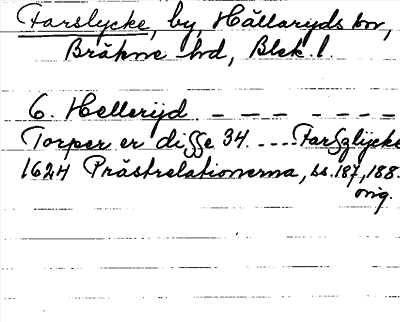 Farslycke, by, Hällaryds sn,
Bräkne hd, Blek. l.
G. Hellerijd. - - - - - - -
Torper er disse 34. .... Farsglijcke
1624 Prästrelationerna, ss. 187, 188.
orig.